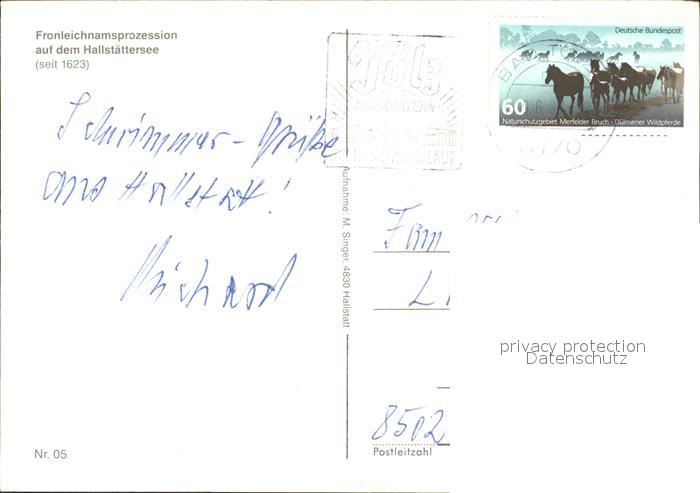 Fronleichnamsprozession
auf dem Hallstättersee
(seit 1623)
Grüße
aus Hallstatt!
Richard
Nr. 05
Aufnahme: M. Singer, 4830 Hallstatt
Deutsche Bundespost
60
Naturschutzgebiet Merfelder Bruch · Dülmener Wildpferde
BAD TÖ
8170
privacy protection
Datenschutz
8502
Postleitzahl